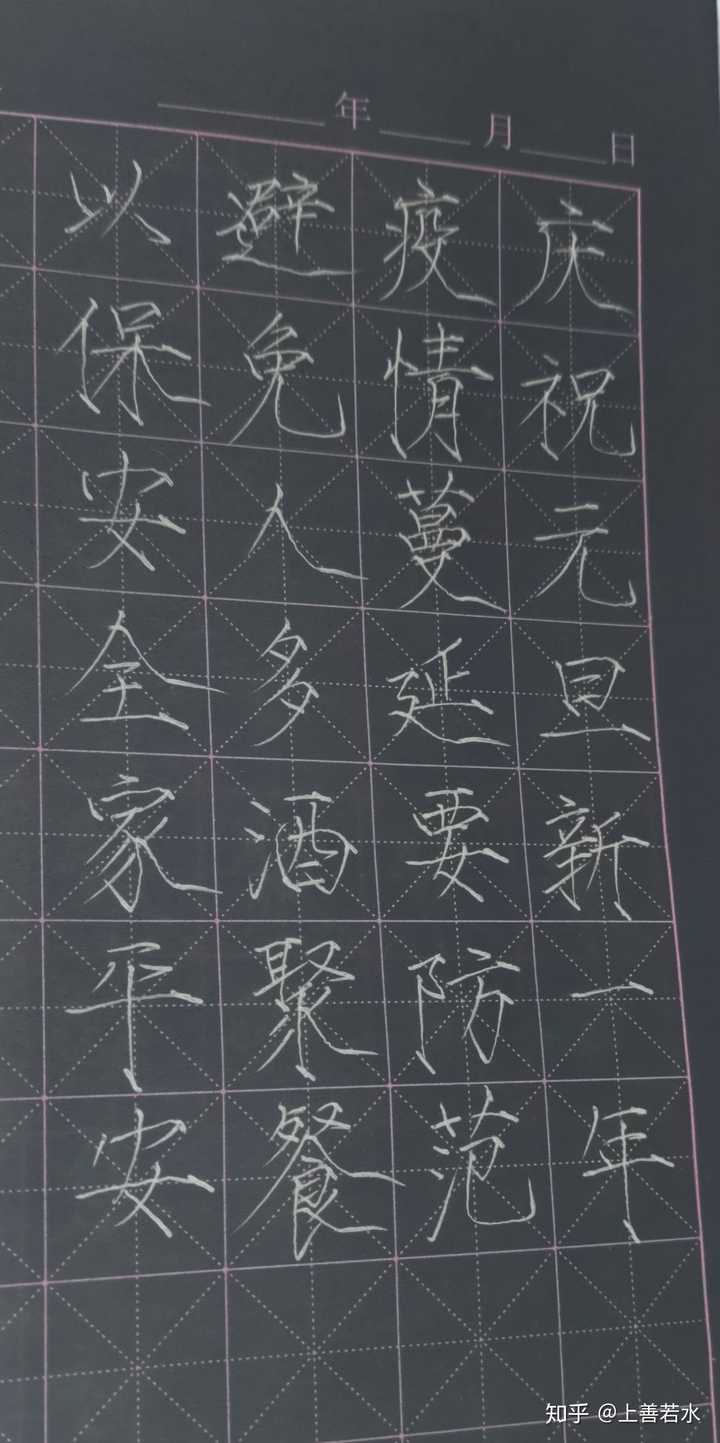 年 月 日
庆祝元旦新一年
疫情蔓延要防范
避免人多酒聚餐
以保安全家平安
知乎 @上善若水